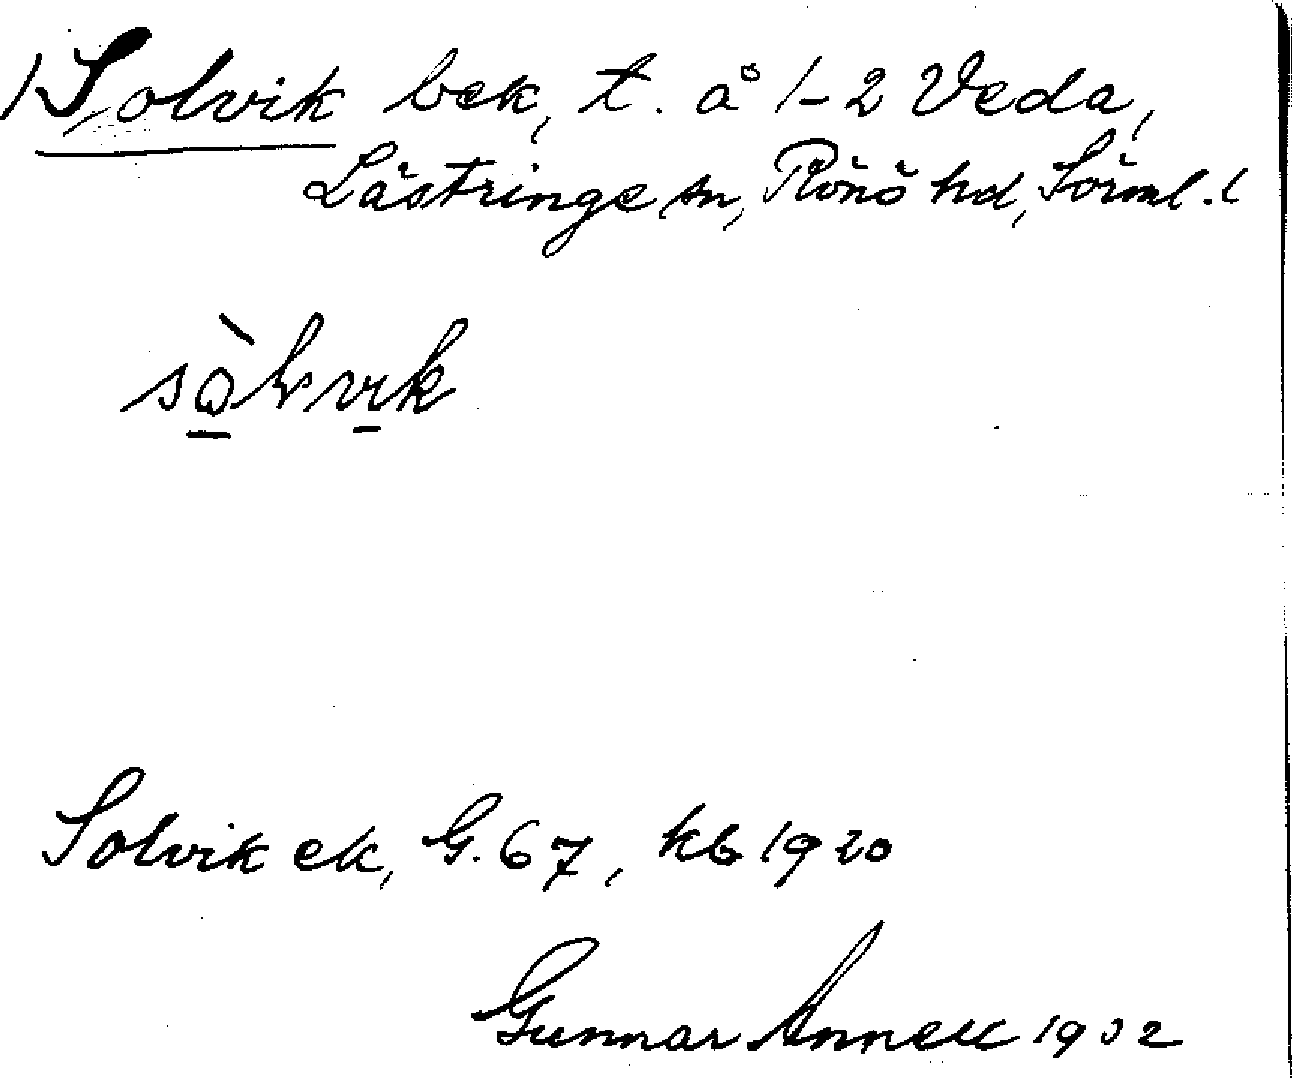 1 Solvik bek, t. å 1-2 Veda,
Lästringe sn, Rönö hd, Sörml. l
sàlvik
Solvik ek, G. 67, kb 1920
Gunnar Annell 1932